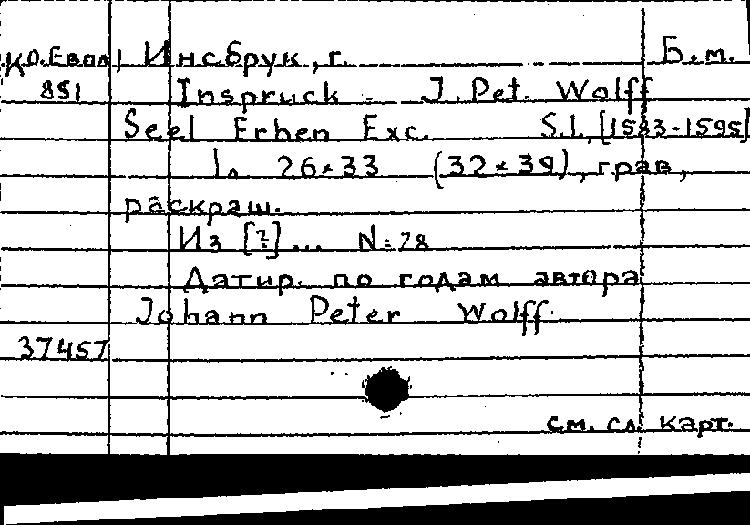 КО.Евал Инсбрук, г. Б.м.
851 Inspruck - J. Pet. Wolff
Seel Erhen Exc. S.l, [1583-1595]
1. 26×33 (32×39), грав,
раскраш.
Из [?]... N=28
Датир. по годам автора
Johann Peter Wolff.
37457
см. сл. карт.